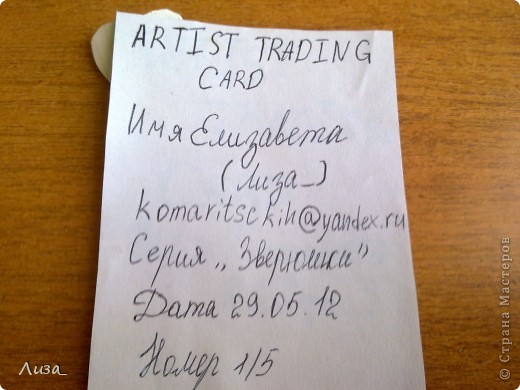 ARTIST TRADING
CARD
Имя Елизавета
(Лиза_)
komaritsckih@yandex.ru
Серия „Зверюшки”
Дата 29.05.12
Номер 1/5
Лиза_
© Страна Мастеров